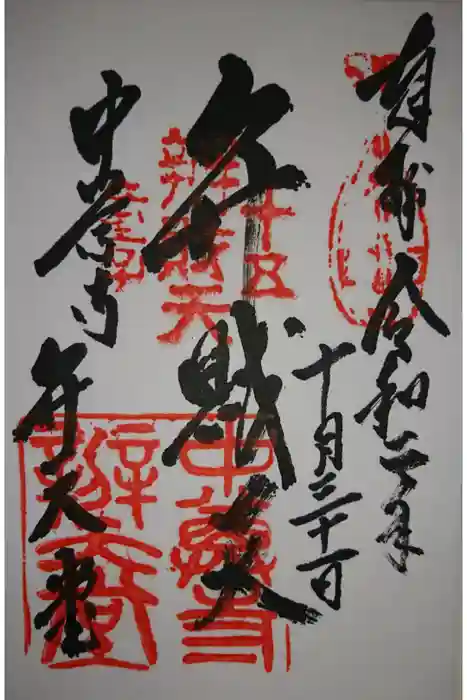 奉拝 令和二年
十月三十一日
弁財天
中尊寺 弁天堂
十五
辨財天
中尊寺
辨天堂